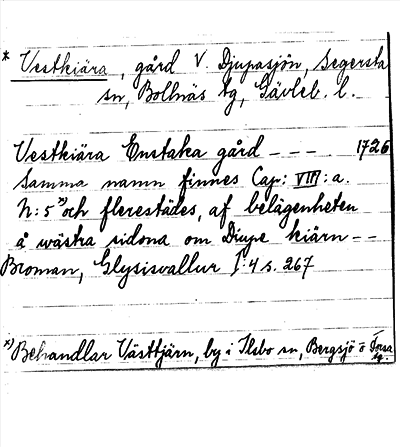 * Vestkiära, gård V. Djupasjön, Segersta
sn, Bollnäs tg, Gävleb. l.
Vestkiära Enstaka gård - - - 1726
Samma namn finnes Cap: VIII: a.
N: 5 x) och flerestädes, af belägenheten
å wästra sidona om Diupe kiärn - -
Broman, Glysisvallur I: 4 s. 267
x) Behandlar Västtjärn, by i Ilsbo sn, Bergsjö o Forsa tg.